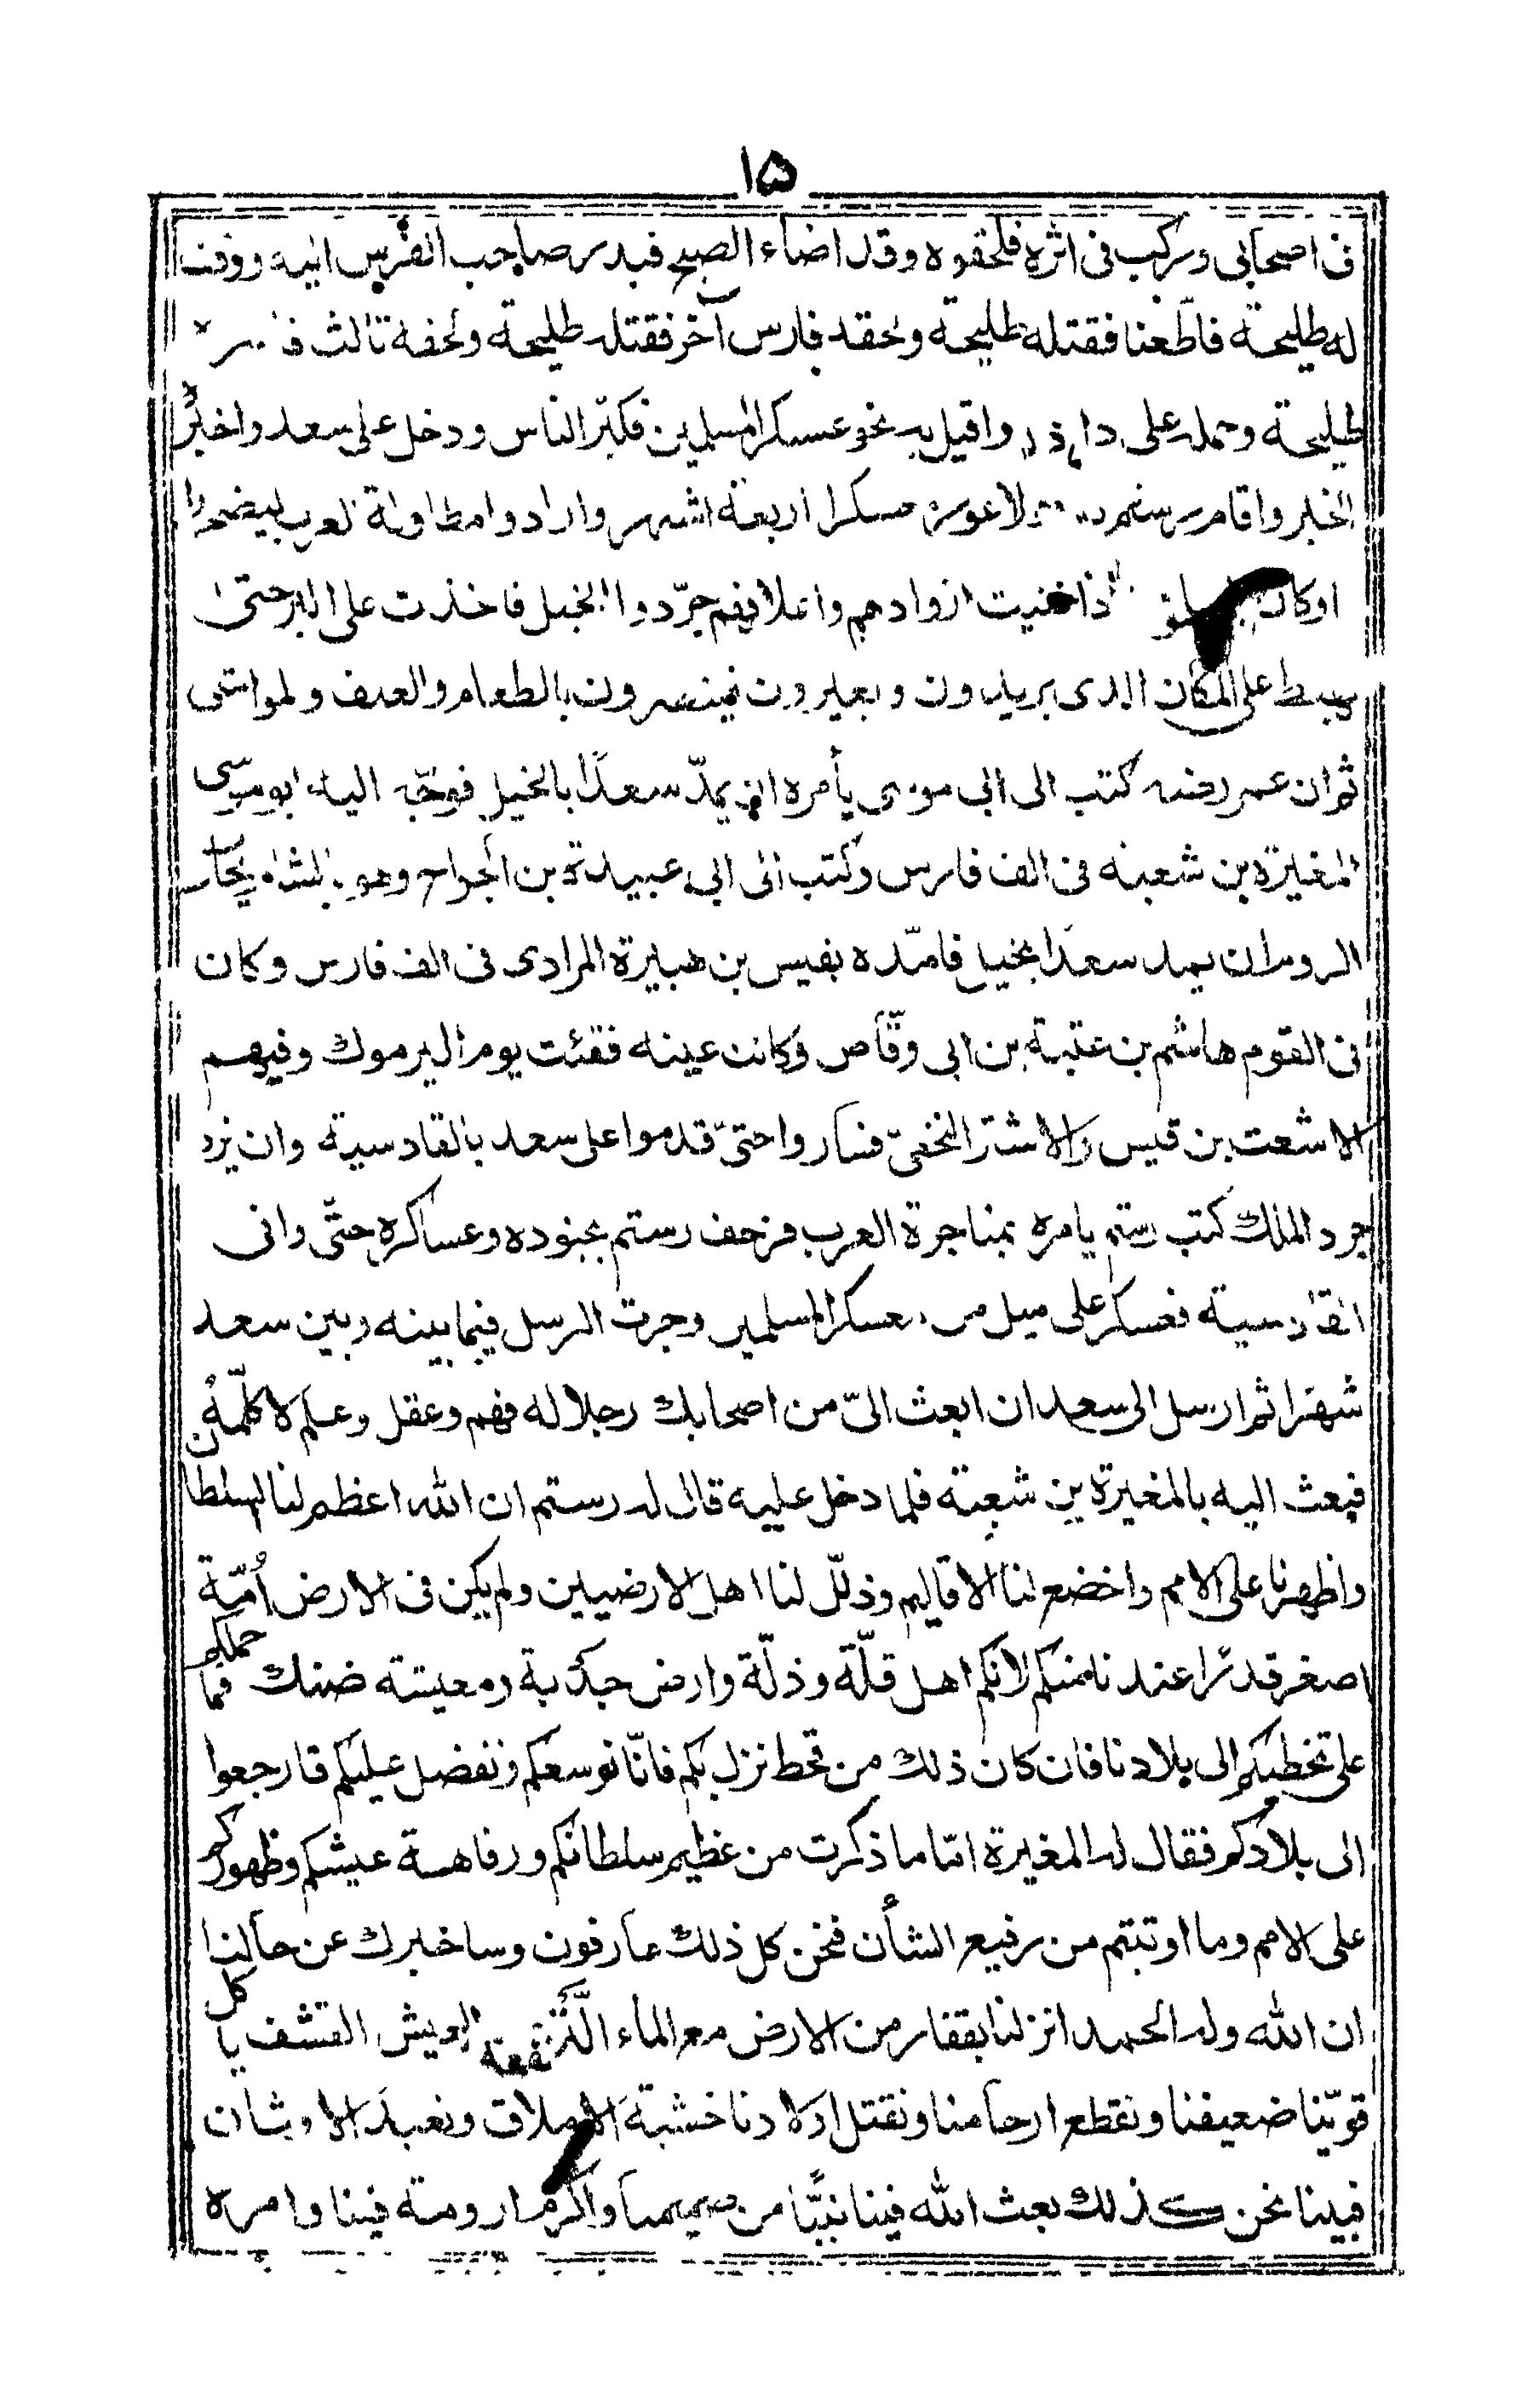 ١٥
فى اصحابى وركب فى اثره فلحقوه وقد اضاء الصبح فبدر صاحب الفرس اليه ووقف
له طليحة فاطعنا فقتله طليحة ولحقه فارس آخر فقتله طليحة ولحقه ثالث
طليحة وحمله على واقبل به نحو عسكر المسلمين فكبّر الناس ودخل على سعد واخبره
الخبر واقام رستم معسكرا اربعة اشهر وارادوا مطاولة العرب ليضجروا
وكان اذا فنيت ازوادهم واعلافهم جرّدوا الخيل فاخذت على البر حتى
يهبط على المكان الذى يريدون ويغيرون فينصرفون بالطعام والعلف والمواشى
ثم ان عمر رضه كتب الى ابى موسى يأمره ان يمدّ سعدًا بالخيل فوجّه اليه ابو موسى
المغيرة بن شعبة فى الف فارس وكتب الى ابى عبيدة بن الجراح وهو بالشام يحارب
الروم ان يمد سعدا بخيل فامدّه بقيس بن هبيرة المرادى فى الف فارس وكان
فى القوم هاشم بن عتبة بن ابى وقّاص وكانت عينه فقئت يوم اليرموك وفيهم
الاشعث بن قيس والاشتر النخعىّ فساروا حتىّ قدموا على سعد بالقادسية وان يزد
جرد الملك كتب رستم يامره بمناجرة العرب فزحف رستم بجنوده وعساكره حتّى وافى
القادسية فعسكر على ميل من معسكر المسلمين وجرت الرسل فيما بينه وبين سعد
شهرا ثم ارسل الى سعد ان ابعث الىّ من اصحابك رجلا له فهم وعقل وعلم لاكلّمهُ
فبعث اليه بالمغيرة بن شعبة فلما دخل عليه قال له رستم ان الله اعظم لنا السلطان
واظهرنا على الامم واخضع لنا الاقاليم وذلّل لنا اهل الارضيين ولم يكن فى الارض اُمّة
اصغر قدرا عندنا منكم لانكم اهل قلّة وذلّة وارض جدبة ومعيشته ضنك فما حملكم
على تخطيكم الى بلادنا فان كان ذلك من قحط نزل بكم فانّا نوسعكم ونفضل عليكم فارجعوا
الى بلادكم فقال له المغيرة امّا ما ذكرت من عظيم سلطانكم ورفاهة عيشكم وظهوركم
على الامم وما اوتيتم من رفيع الشأن فنحن كل ذلك عارفون وساخبرك عن حالنا
ان الله وله الحمد انزلنا بقفار من الارض مع الماء النّزر والعيش القشف ياكل
قويّنا ضعيفنا ونقطع ارحامنا ونقتل اولادنا خشية الاملاق ونعبد الاوثان
فبينا نحن كذلك بعث الله فينا نبيًّا من صميمنا واكرم ارومة فينا وامره